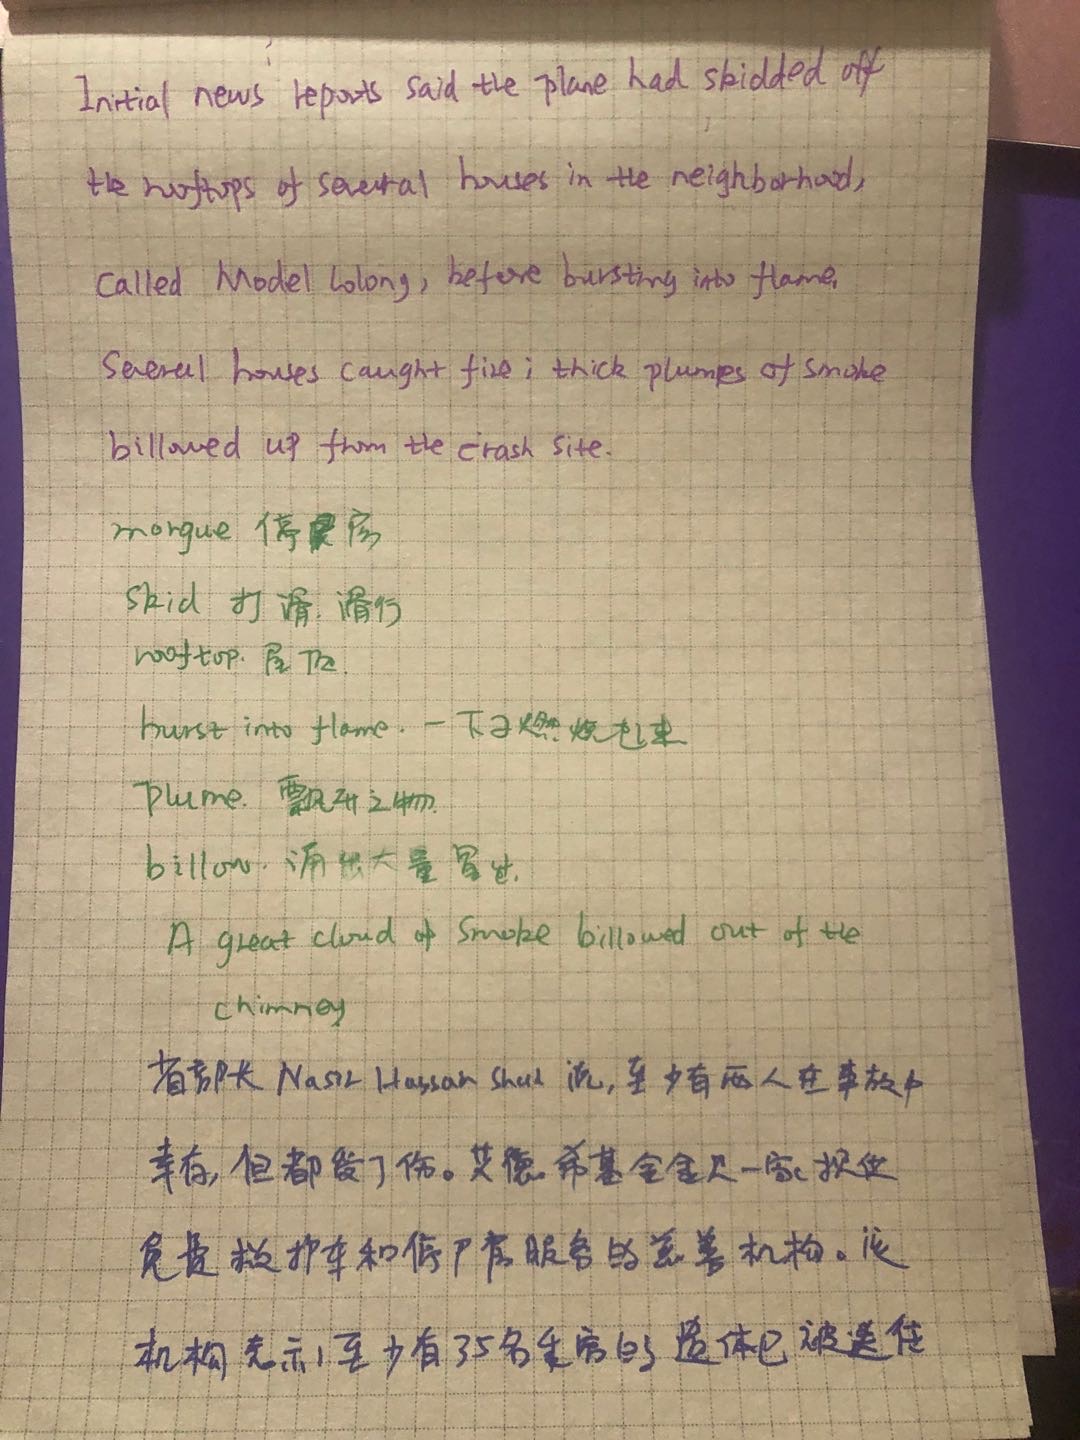 Initial news reports said the plane had skidded off
the rooftops of several houses in the neighborhood,
called Model Lolong, before bursting into flame.
Several houses caught fire; thick plumes of smoke
billowed up from the crash site.
morgue 停 房
skid 打滑. 滑行
rooftop. 屋顶
burst into flame. 一下子燃烧起来
plume. 飘升之物
billow. 涌出大量冒出.
A great cloud of smoke billowed out of the
chimney
省部长 Nasir Hassan Shah 说, 至少有两人在事故中
幸存, 但都受了伤。艾德希基金会是一家提供
免费救护车和低 服务的慈善机构。该
机构表示, 至少有35名 的遗体已被送往